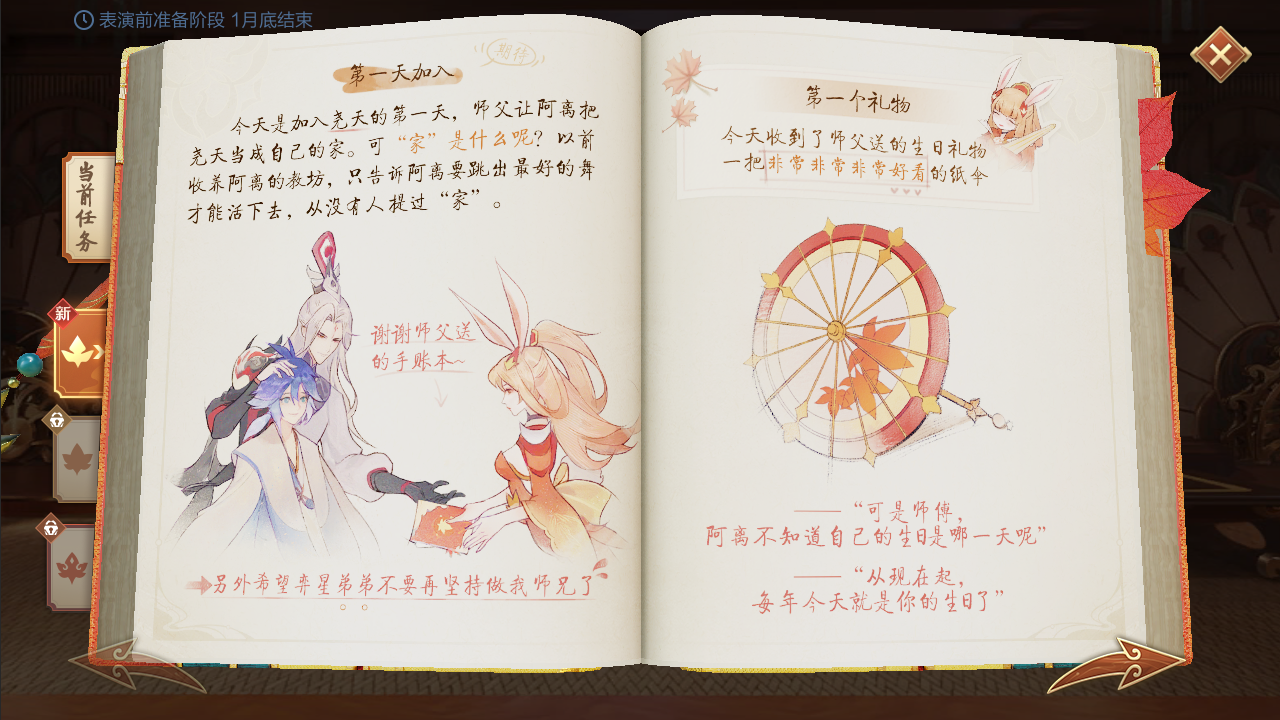 表演前准备阶段 1月底结束
当前任务
新
期待
第一天加入
今天是加入尧天的第一天，师父让阿离把
尧天当成自己的家。可“家”是什么呢？以前
收养阿离的教坊，只告诉阿离要跳出最好的舞
才能活下去，从没有人提过“家”。
谢谢师父送
的手账本~
另外希望弈星弟弟不要再坚持做我师兄了
第一个礼物
今天收到了师父送的生日礼物
一把非常非常非常好看的纸伞
——“可是师傅，
阿离不知道自己的生日是哪一天呢”
——“从现在起，
每年今天就是你的生日了”